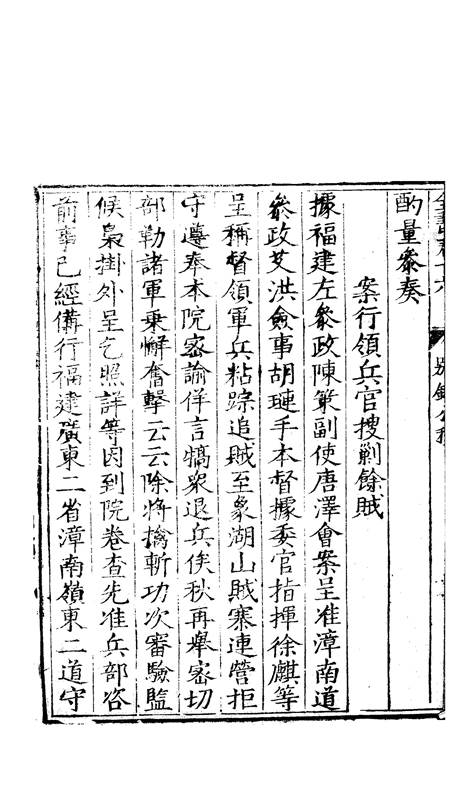 酌量叅奏
案行領兵官搜剿餘賊
據福建左叅政陳策副使唐澤會案呈准漳南道
叅政艾洪僉事胡璉手本督據委官指揮徐麒等
呈稱督領軍兵粘踪追賊至象湖山賊寨連營拒
守遵奉本院密諭佯言犒衆退兵俟秋再舉密切
部勒諸軍乗懈奮擊云云除將擒斬功次審驗監
候梟掛外呈乞照詳等因到院卷查先准兵部咨
前事已經備行福建廣東二省漳南嶺東二道守